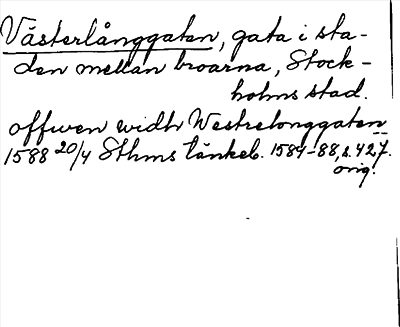 Västerlånggatan, gata i sta-
den mellan broarna, Stock-
holms stad.
offwen widh Westrelonggaten
1588 20/4 Sthms tänkeb. 1584-88, s. 427.
orig.